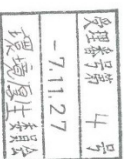 受理番号第 4 号
-7.11.27
環境厚生委員会